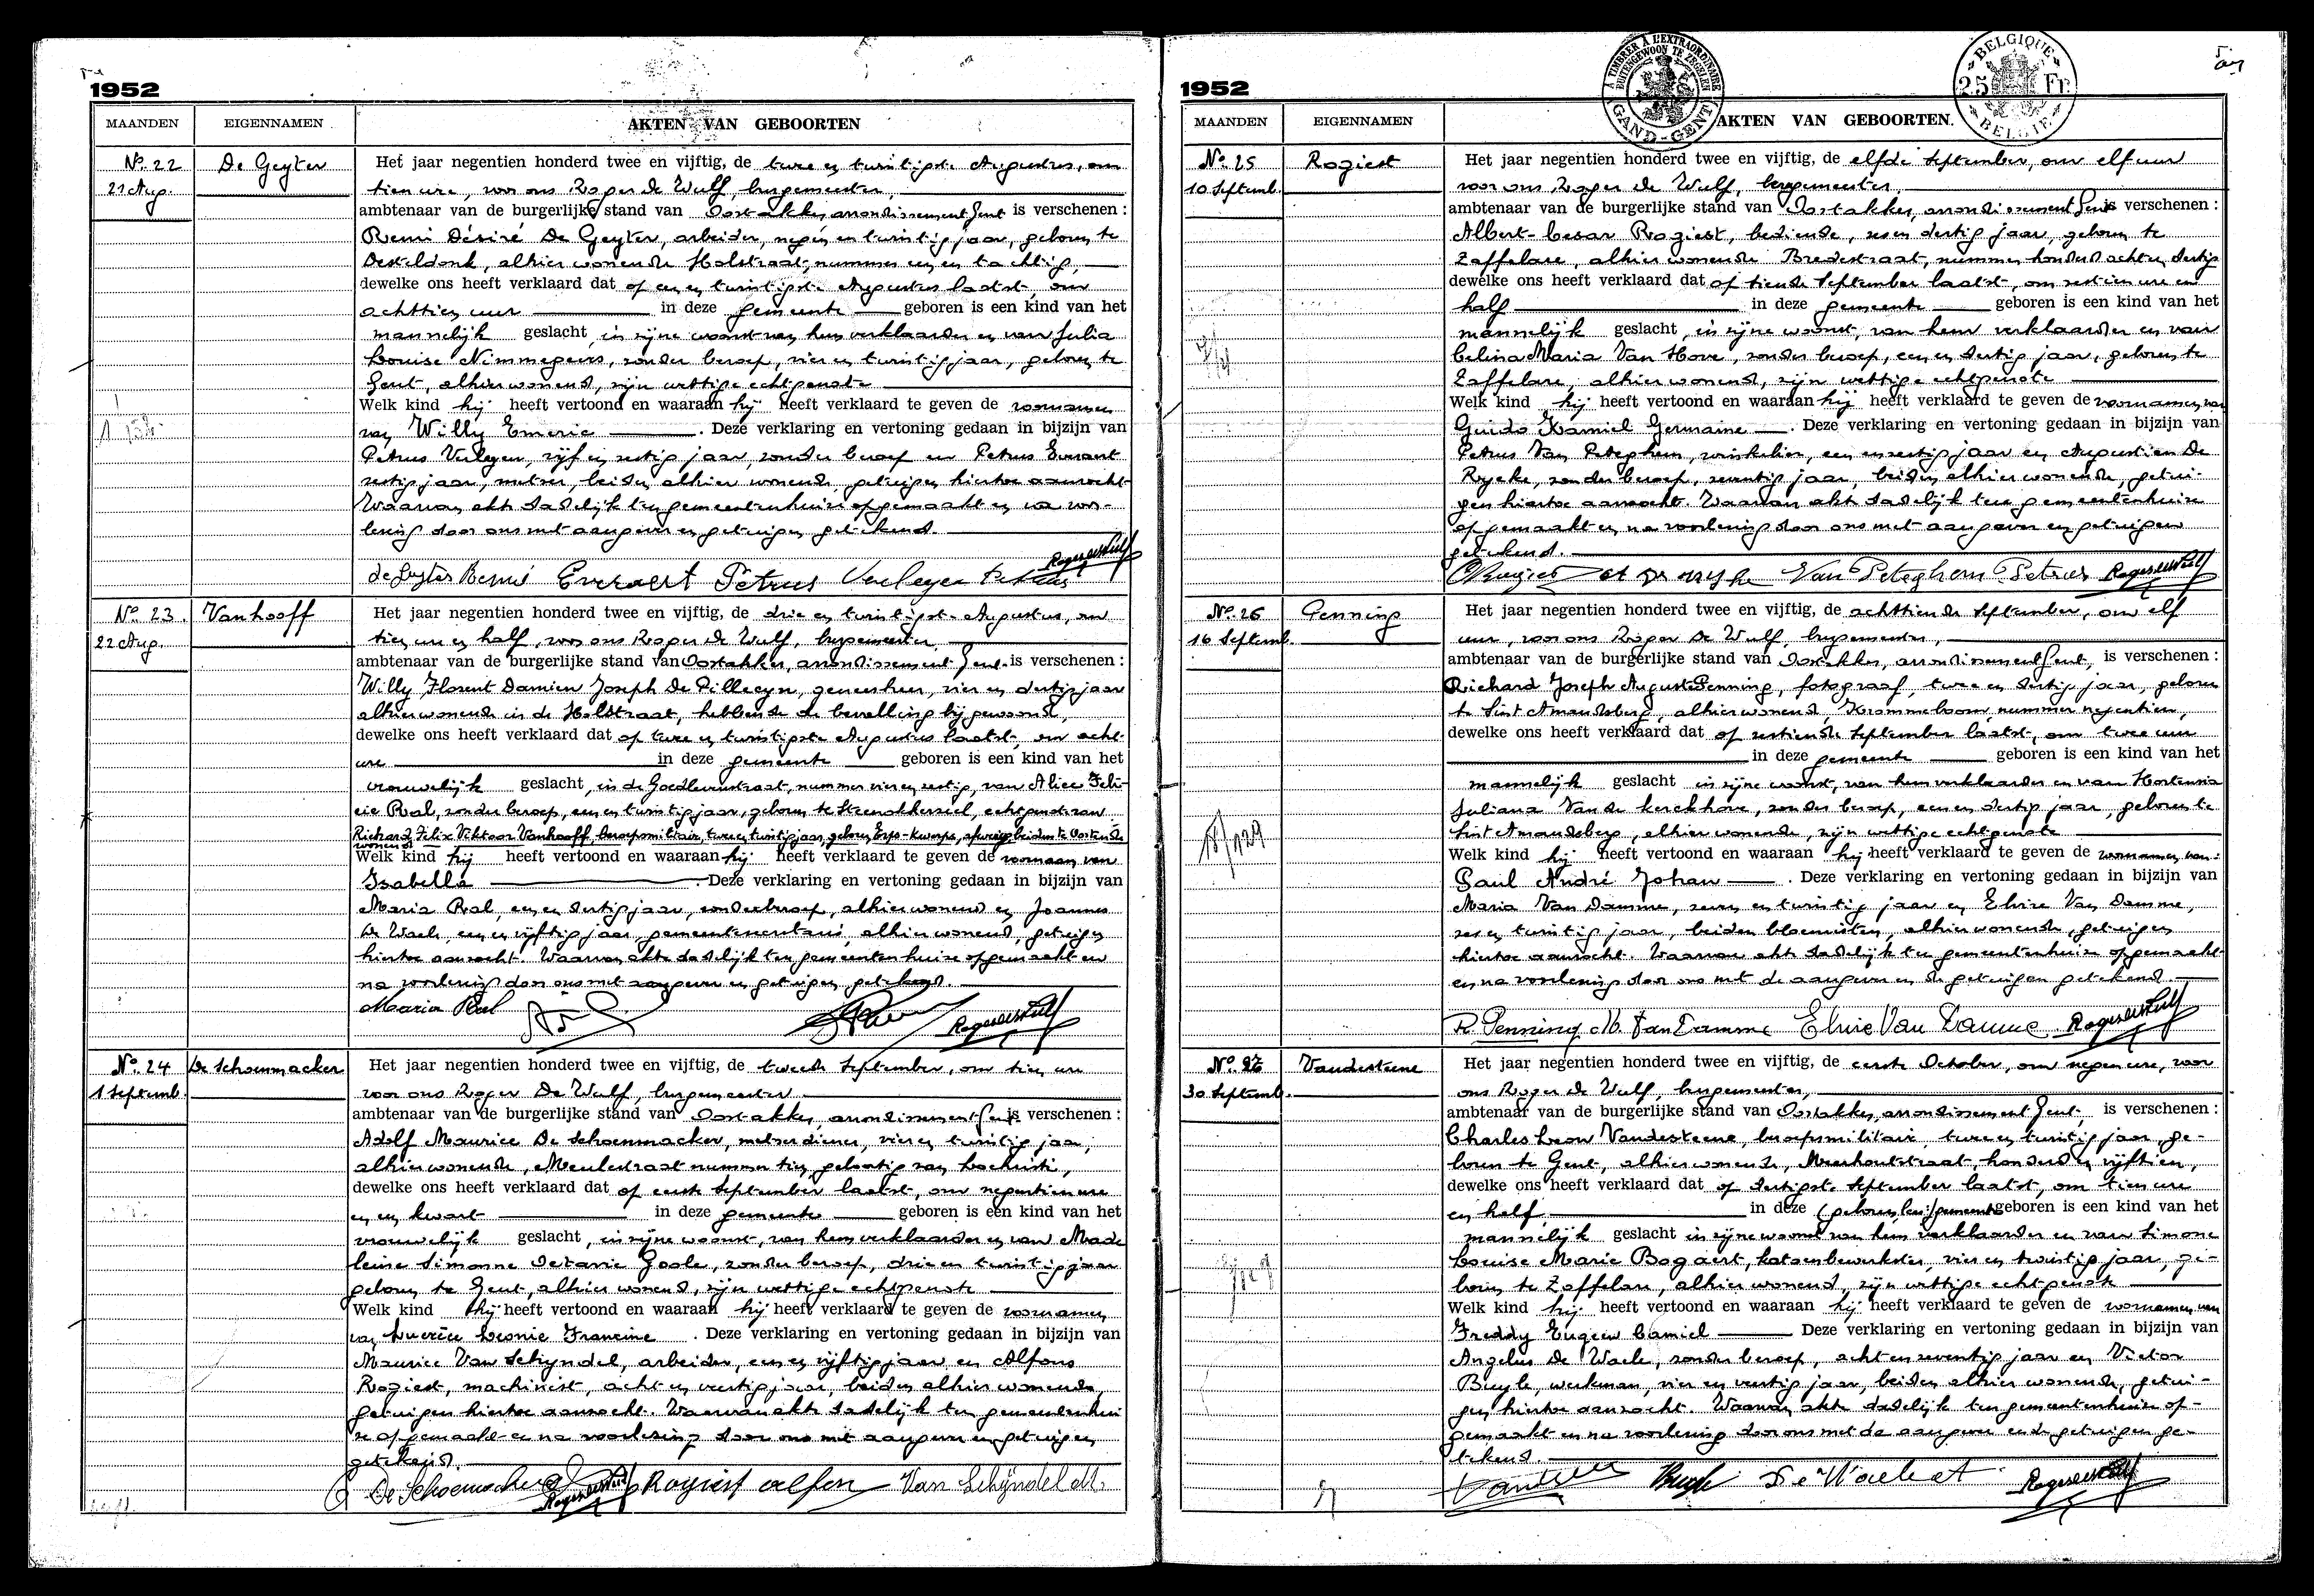 1952
MAANDEN EIGENNAMEN AKTEN VAN GEBOORTEN
No. 22 De Geyter Het jaar negentien honderd twee en vijftig, de twee en twintigste Augustus, om
21 Aug. tien ure, voor ons Roger de Wulf, burgemeester,
ambtenaar van de burgerlijke stand van Oostakker, arrondissement Gent is verschenen :
Remi Désiré De Geyter, arbeider, negen en twintig jaar, geboren te
Desteldonk, alhier wonende Holstraat, nummer een en tachtig,
dewelke ons heeft verklaard dat op een en twintigste Augustus laatst, om
achttien uur in deze gemeente geboren is een kind van het
mannelijk geslacht, in zijne woonst van hem verklaarder en van Julia
Louise Nimmegeers, zonder beroep, vier en twintig jaar, geboren te
Gent, alhier wonend, zijn wettige echtgenote
Welk kind hij heeft vertoond en waaraan hij heeft verklaard te geven de voornamen
van Willy Emeric . Deze verklaring en vertoning gedaan in bijzijn van
Petrus Verleyen, vijf en zestig jaar, zonder beroep en Petrus Everaert
zestig jaar, metser, beiden alhier wonende, getuigen hiertoe aanzocht
Waarvan akte dadelijk ten gemeentenhuize opgemaakt en na voor-
lezing door ons met aangever en getuigen getekend.
de Geyter Remi Everaert Petrus Verleyen Petrus Roger de Wulf
No. 23. Vanhooff Het jaar negentien honderd twee en vijftig, de drie en twintigste Augustus, om
22 Aug. tien ure en half, voor ons Roger de Wulf, burgemeester
ambtenaar van de burgerlijke stand van Oostakker, arrondissement Gent is verschenen :
Willy Florent Damien Joseph De Pillecyn, geneesheer, vier en dertig jaar
alhier wonende in de Holstraat, hebbende de bevalling bijgewoond,
dewelke ons heeft verklaard dat op twee en twintigste Augustus laatst, om acht
ure in deze gemeente geboren is een kind van het
vrouwelijk geslacht, in de Goedlevenstraat, nummer vier en zestig, van Alice Feli-
cie Pral, zonder beroep, een en twintig jaar, geboren te Steenokkerzeel, echtgenote van
Richard Felix Viktoor Vanhooff, beroepsmilitair, twee en twintig jaar, geboren Erps-Kwerps, afwezig, beiden te Oostende
wonend
Welk kind hij heeft vertoond en waaraan hij heeft verklaard te geven de voornaam van
Isabella . Deze verklaring en vertoning gedaan in bijzijn van
Maria Pral, een en dertig jaar, zonder beroep, alhier wonend en Joannes
De Waele, een en vijftig jaar, gemeentesecretaris, alhier wonend, getuigen
hiertoe aanzocht. Waarvan akte dadelijk ten gemeentenhuize opgemaakt en
na voorlezing door ons met aangever en getuigen getekend.
Maria Pral Roger de Wulf
No. 24 De Schoenmacker Het jaar negentien honderd twee en vijftig, de tweede September, om tien ure
1 Septemb. voor ons Roger De Wulf, burgemeester
ambtenaar van de burgerlijke stand van Oostakker, arrondissement Gent is verschenen :
Adolf Maurice De Schoenmacker, metserdiener, vier en twintig jaar,
alhier wonende, Meulestraat nummer tien, geboortig van Lochristi,
dewelke ons heeft verklaard dat op eerste September laatst, om negentien ure
en een kwart in deze gemeente geboren is een kind van het
vrouwelijk geslacht, in zijne woonst, van hem verklaarder en van Made
leine Simonne Octavie Goole, zonder beroep, drie en twintig jaar
geboren te Gent, alhier wonend, zijn wettige echtgenote
Welk kind hij heeft vertoond en waaraan hij heeft verklaard te geven de voornamen
van Lucrèce Leonie Francine . Deze verklaring en vertoning gedaan in bijzijn van
Maurice Van Schyndel, arbeider, een en vijftig jaar en Alfons
Rogiest, machinist, acht en veertig jaar, beiden alhier wonende
getuigen hiertoe aanzocht. Waarvan akte dadelijk ten gemeentenhui
ze opgemaakt en na voorlezing door ons met aangever en getuigen
getekend.
De Schoenmacker Roger de Wulf Rogiest alfons Van Schijndel M.
1952
A TIMBRER A L'EXTRAORDINAIRE
BUITENGEWOON TE ZEGELEN
GAND-GENT
BELGIQUE
25 Fr.
BELGIË
MAANDEN EIGENNAMEN AKTEN VAN GEBOORTEN.
No. 25 Rogiest Het jaar negentien honderd twee en vijftig, de elfde September, om elf uur
10 Septemb. voor ons Roger de Wulf, burgemeester,
ambtenaar van de burgerlijke stand van Oostakker, arrondissement Gent is verschenen :
Albert-Cesar Rogiest, bediende, zes en dertig jaar, geboren te
Zaffelare, alhier wonende Bredestraat, nummer honderd acht en dertig
dewelke ons heeft verklaard dat op tiende September laatst, om zestien ure en
half in deze gemeente geboren is een kind van het
mannelijk geslacht, in zijne woonst, van hem verklaarder en van
Celina Maria Van Hove, zonder beroep, een en dertig jaar, geboren te
Zaffelare, alhier wonend, zijn wettige echtgenote
Welk kind hij heeft vertoond en waaraan hij heeft verklaard te geven de voornamen van
Guido Kamiel Germaine . Deze verklaring en vertoning gedaan in bijzijn van
Petrus Van Peteghem, winkelier, een en zestig jaar en Augustien De
Rycke, zonder beroep, zeventig jaar, beiden alhier wonende, getui-
gen hiertoe aanzocht. Waarvan akte dadelijk ten gemeentenhuize
opgemaakt en na voorlezing door ons met aangever en getuigen
getekend.
Van Peteghem Petrus Roger de Wulf
No. 26 Penning Het jaar negentien honderd twee en vijftig, de achttiende September, om elf
16 Septemb. uur, voor ons Roger De Wulf, burgemeester,
ambtenaar van de burgerlijke stand van Oostakker, arrondissement Gent, is verschenen :
Richard Joseph Auguste Penning, fotograaf, twee en dertig jaar, geboren
te Sint Amandsberg, alhier wonend, Krommeboom, nummer negentien,
dewelke ons heeft verklaard dat op zestiende September laatst, om twee uur
in deze gemeente geboren is een kind van het
mannelijk geslacht in zijne woonst, van hem verklaarder en van Hortensia
Juliana Van de kerckhove, zonder beroep, een en dertig jaar, geboren te
Sint Amandsberg, alhier wonende, zijn wettige echtgenote
18/129
Welk kind hij heeft vertoond en waaraan hij heeft verklaard te geven de voornamen van:
Paul André Johan . Deze verklaring en vertoning gedaan in bijzijn van
Maria Van Damme, zeven en twintig jaar en Elvire Van Damme,
zes en twintig jaar, beiden bloemisten, alhier wonende, getuigen
hiertoe aanzocht. Waarvan akte dadelijk ten gemeentenhuize opgemaakt
en na voorlezing door ons met de aangever en de getuigen getekend.
R. Penning M. Van Damme Elvire Van Damme Roger de Wulf
No. 27 Vandesteene Het jaar negentien honderd twee en vijftig, de eerste October, om negen ure, voor
30 Septemb. ons Roger de Wulf, burgemeester,
ambtenaar van de burgerlijke stand van Oostakker, arrondissement Gent, is verschenen :
Charles Leon Vandesteene, beroepsmilitair, twee en twintig jaar, ge-
boren te Gent, alhier wonende, Meerhoutstraat, honderd en vijftien,
dewelke ons heeft verklaard dat op dertigste September laatst, om tien ure
en half, in deze gemeente geboren is een kind van het
mannelijk geslacht in zijne woonst van hem verklaarder en van Simone
Louise Marie Bogaert, katoenbewerkster, vier en twintig jaar, ge-
boren te Zaffelare, alhier wonend, zijn wettige echtgenote
Welk kind hij heeft vertoond en waaraan hij heeft verklaard te geven de voornamen van
Freddy Eugeen Camiel Deze verklaring en vertoning gedaan in bijzijn van
Angelus De Waele, zonder beroep, acht en zeventig jaar en Victor
Buyle, werkman, vier en veertig jaar, beiden alhier wonende, getui-
gen hiertoe aanzocht. Waarvan akte dadelijk ten gemeentenhuize op-
gemaakt en na voorlezing door ons met de aangever en de getuigen ge-
tekend.
Buyle De Waele A Roger de Wulf